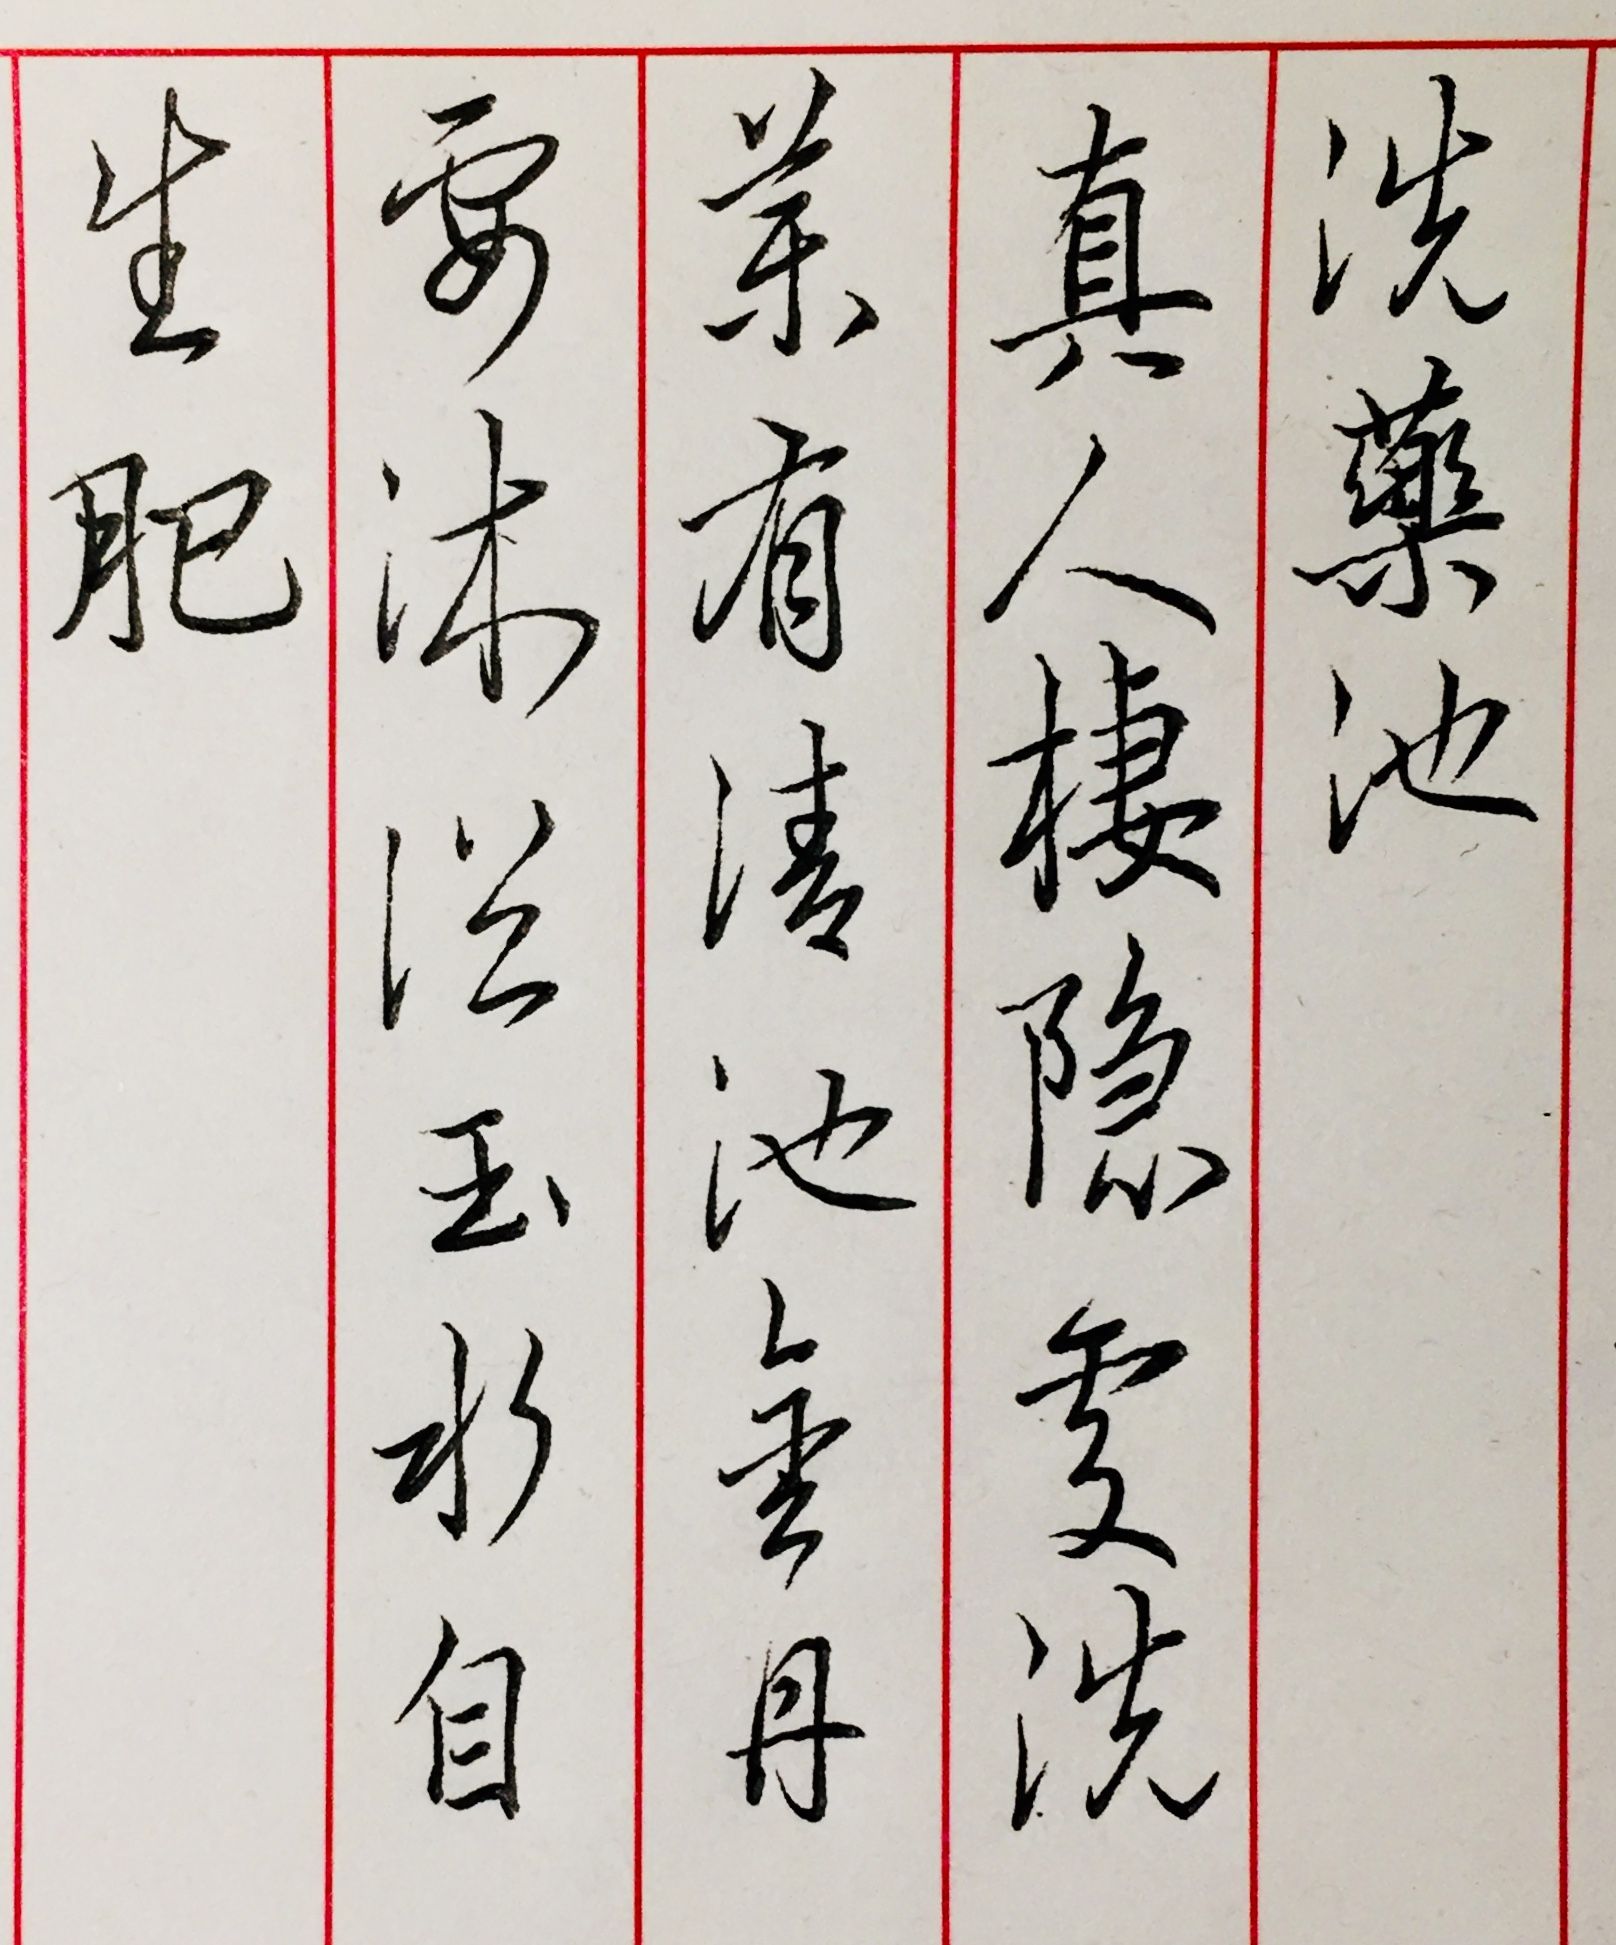 洗藥池
真人棲隐處洗
藥有清池金丹
要沐浴玉水自
生肥